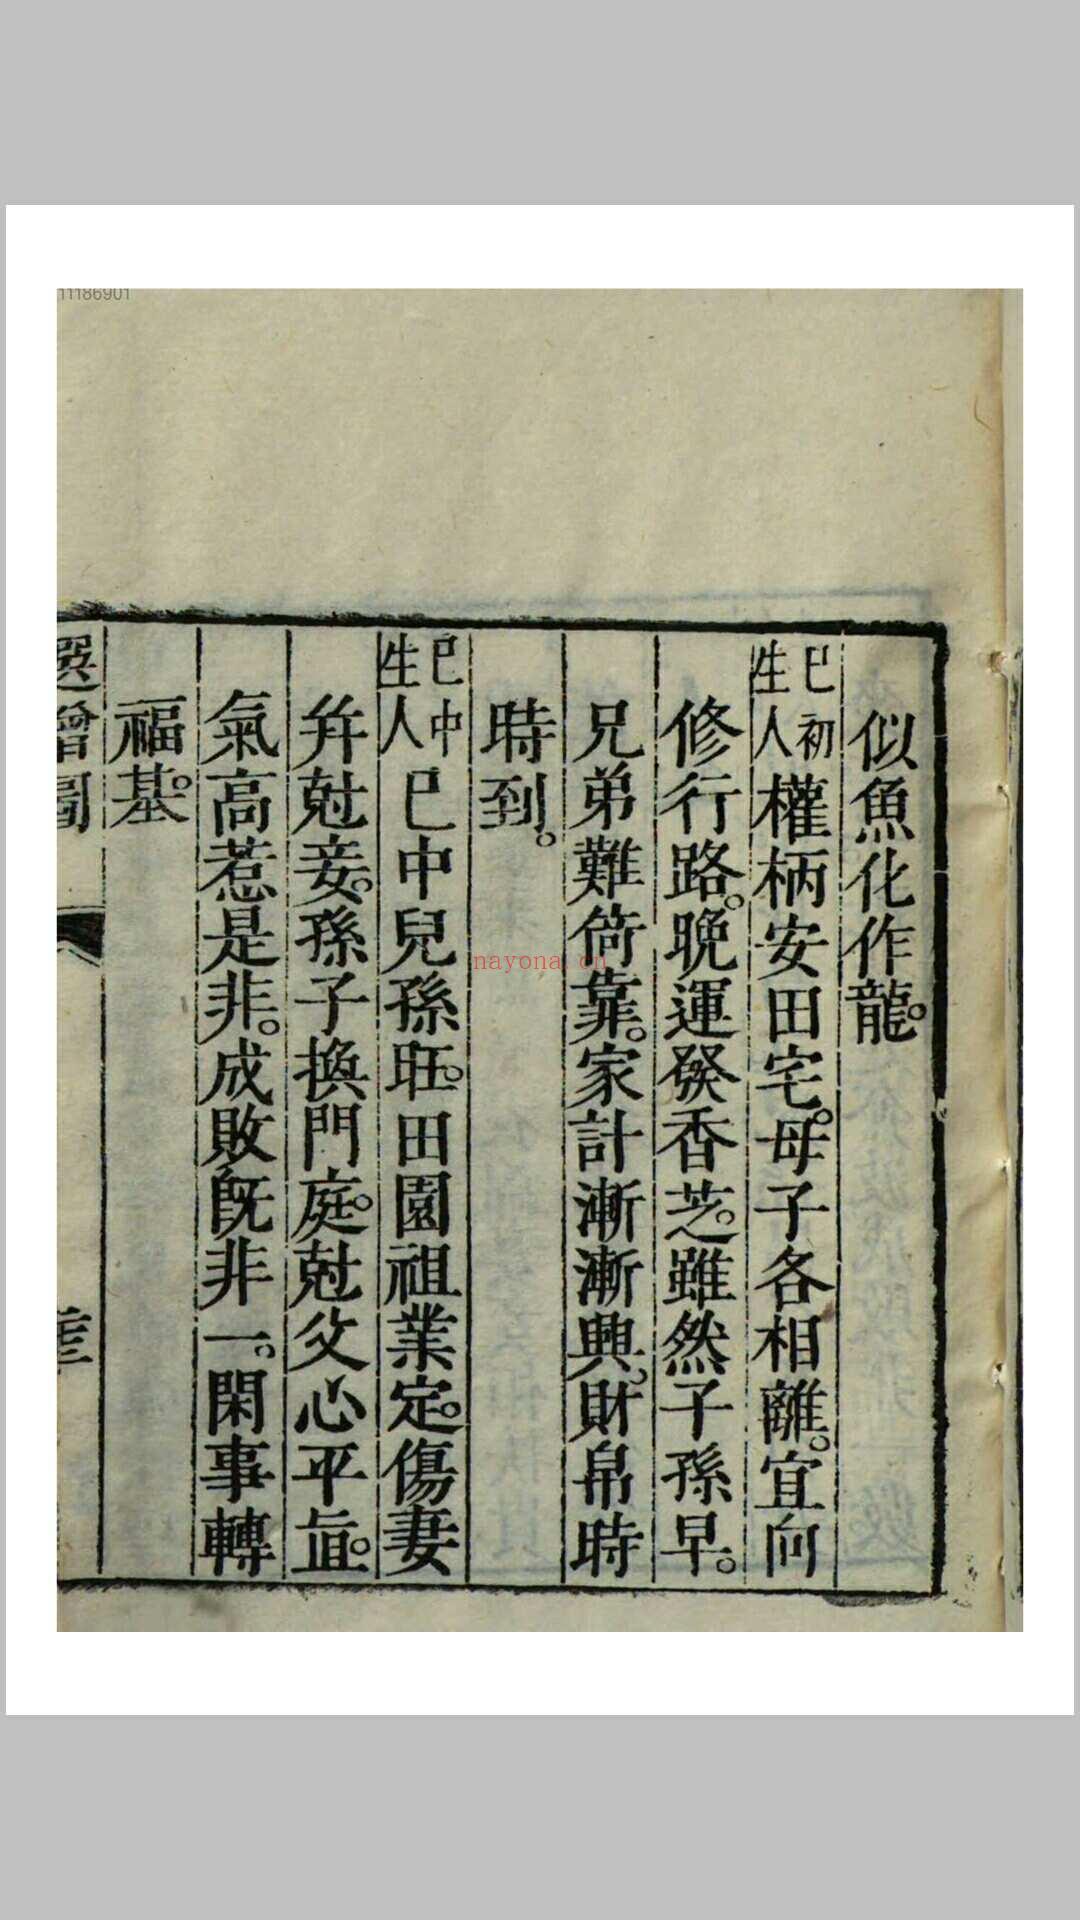 11186901
似魚化作龍。
巳初生人 權柄安田宅。母子各相離。宜向
修行路。晚運發香芝。雖然子孫早。
兄弟難倚靠。家計漸漸興。財帛時
時到。
巳中生人 巳中兒孫旺。田園祖業定。傷妻
并尅妾。孫子換門庭。尅父心平直。
氣高惹是非。成敗既非一。閑事轉
福基。
nayona.cn